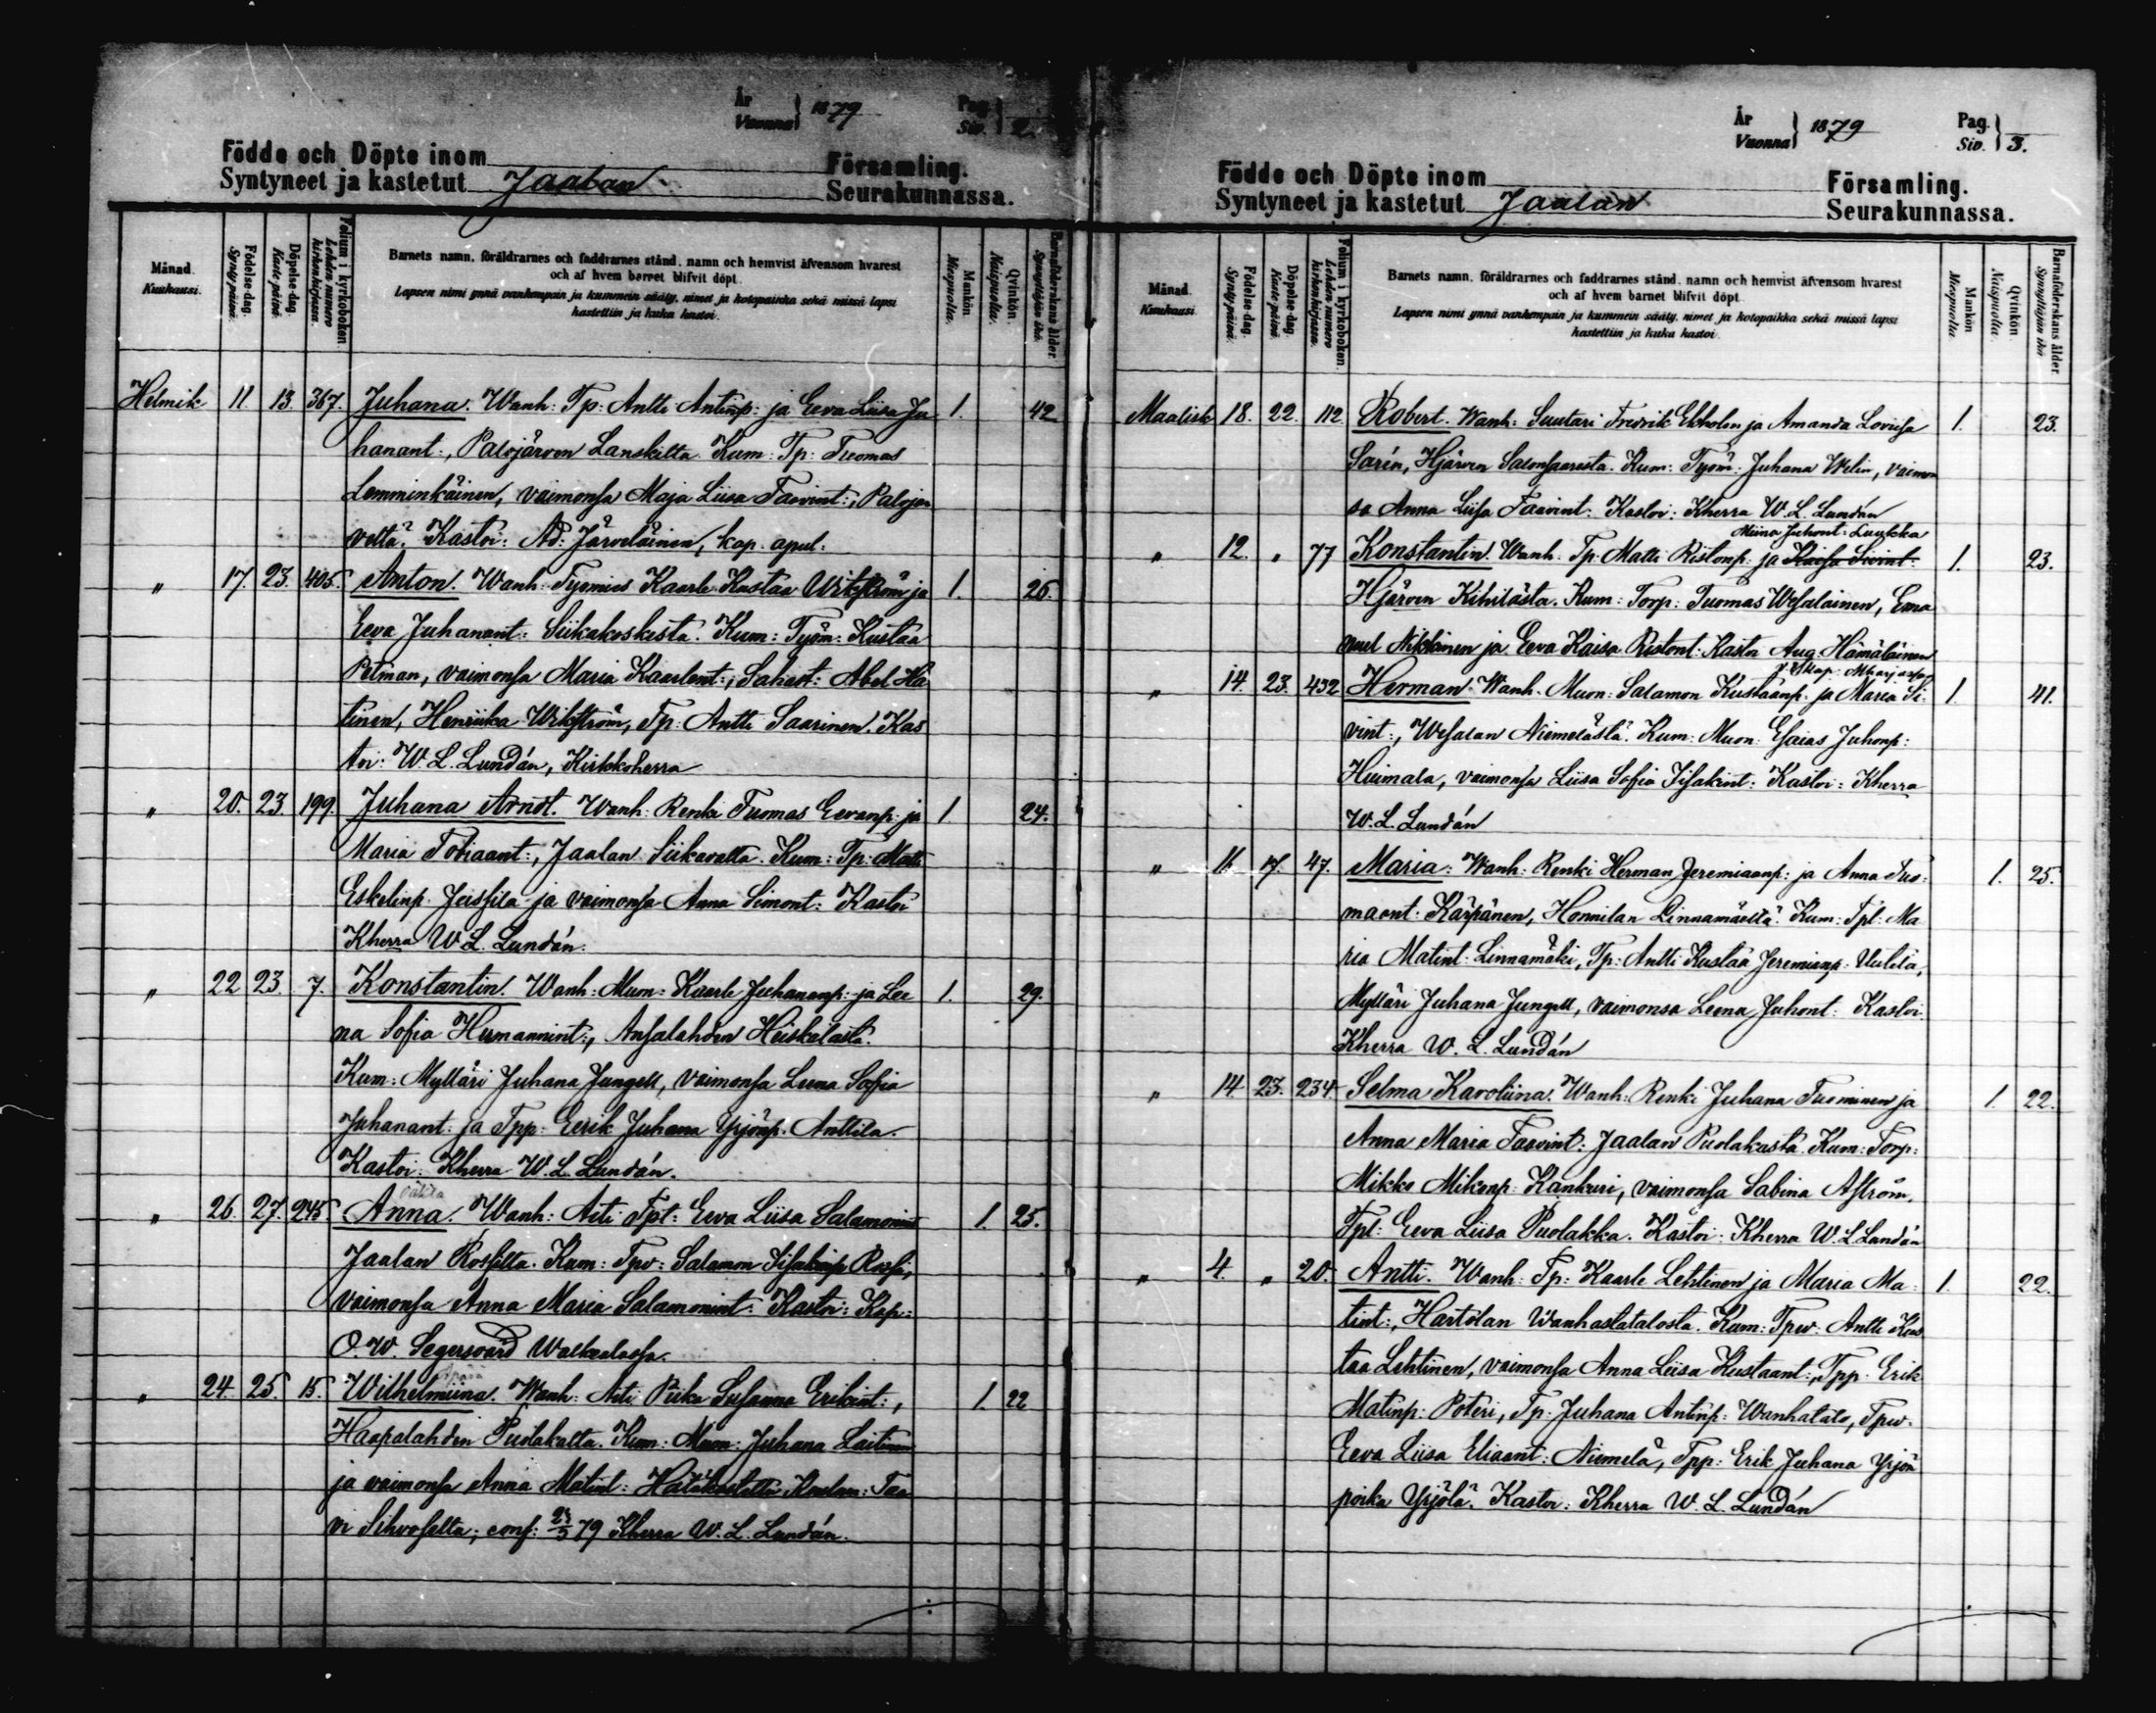 År
Vuonna } 1879
Pag.
Siv. } 2.
Födde och Döpte inom
Syntyneet ja kastetut Jaalan
Församling.
Seurakunnassa.
Månad.
Kuukausi.
Födelse-dag.
Synty päivä.
Döpelse-dag.
Kaste päivä.
Folium i kyrkoboken.
Lehden numero
kirkonkirjassa.
Barnets namn, föräldrarnes och faddrarnes stånd, namn och hemvist äfvensom hvarest
och af hvem barnet blifvit döpt.
Lapsen nimi ynnä vanhempain ja kummein sääty, nimet ja kotopaikka sekä missä lapsi
kastettiin ja kuka kastoi.
Mankön
Miespuolia.
Qvinkön.
Naispuolia.
Barnaföderskans ålder.
Synnyttäjän ikä.
Helmik 11. 13. 367. Juhana. Wanh: Tp: Antti Antinp: ja Eeva Liisa Ju 1. 42
hanant:, Palojärven Lanskilta. Kum: Tp: Tuomas
Lemminkäinen, vaimonsa Maja Liisa Taavint:, Palojär
veltä. Kastoi: Ad: Järveläinen, kap. apul:
" 17. 23. 405. Anton. Wanh: Työmies Kaarle Kustaa Wikström ja 1. 26.
Eeva Juhanant: Siikakoskesta. Kum: Työm: Kustaa
Petman, vaimonsa Maria Kaarlent:, Sahast: Abel Ha
tinen, Henriika Wikström, Tp: Antti Saarinen. Kas
toi: W. L. Lundán, Kirkkoherra
" 20. 23. 199. Juhana Arndt. Wanh: Renki Tuomas Eevanp: ja 1 24.
Maria Tobiaant:, Jaalan Siikavalta. Kum: Tp: Matti
Eskelinp. Jeissilä ja vaimonsa Anna Simont: Kastoi
Kherra W. L. Lundán.
" 22 23. 7. Konstantin. Wanh: Muon: Kaarle Juhananp: ja Lee 1. 29.
na Sofia Hermannint:, Ansalahden Heiskalasta.
Kum: Mylläri Juhana Jungell, vaimonsa Leena Sofia
Juhanant: ja Tpp: Eerik Juhana Yrjönp. Anttila.
Kastoi: Kherra W. L. Lundán.
" 26. 27. 245 Anna. Wanh: Äiti Tpt: Eeva Liisa Salamonint 1. 25.
Jaalan Rossilta. Kum: Tpv: Salamon Iisakinp Rossi,
vaimonsa Anna Maria Salamonint: Kastoi: Kap:
O. W. Segersvärd Walkealassa.
" 24. 25. 15. Wilhelmiina. Wanh: Äiti Piika Susanna Erikint:, 1. 22
Haapalahden Puolakalta. Kum: Muon: Juhana Laitinen
ja vaimonsa Anna Matint: Hätäkastettu Taa
vi Sihvoselta; conf: 23/3 79 Kherra W. L. Lundán.
År
Vuonna } 1879
Pag.
Siv. } 3.
Födde och Döpte inom
Syntyneet ja kastetut Jaalan
Församling.
Seurakunnassa.
Månad.
Kuukausi.
Födelse-dag.
Synty päivä.
Döpelse-dag.
Kaste päivä.
Folium i kyrkoboken.
Lehden numero
kirkonkirjassa.
Barnets namn, föräldrarnes och faddrarnes stånd, namn och hemvist äfvensom hvarest
och af hvem barnet blifvit döpt.
Lapsen nimi ynnä vanhempain ja kummein sääty, nimet ja kotopaikka sekä missä lapsi
kastettiin ja kuka kastoi.
Mankön
Miespuolia.
Qvinkön.
Naispuolia.
Barnaföderskans ålder.
Synnyttäjän ikä.
Maalisk 18. 22. 112. Robert. Wanh: Suutari Fredrik Ekholm ja Amanda Lovisa 1. 23.
Sarén, Hjärven Salonsaaresta. Kum: Työm: Juhana Welin, vaimon
sa Anna Liisa Taavint: Kastoi: Kherra W. L. Lundán
Miina Juhont: Luukka
" 12. " 77 Konstantin. Wanh. Tp: Matti Ristonp: ja Kaisa Sivint: 1. 23.
Hjärven Kihilästä. Kum: Torp: Tuomas Wesalainen, Ema
nuel Niklainen ja Eeva Kaisa Ristont: Kastoi Aug. Hämäläinen
" 14. 23. 432 Herman. Wanh. Muon. Salamon Kustaanp. ja Maria Si: 1. 41.
vint:, Wesalan Niemelästä. Kum: Muon: Esaias Juhonp:
Huimala, vaimonsa Liisa Sofia Iisakint: Kastoi: Kherra
W. L. Lundán
" 16. 17. 47. Maria: Wanh: Renki Herman Jeremiaanp: ja Anna Tuo: 1. 25.
maant: Kärpänen, Honnilan Linnamäeltä. Kum: Tpt: Ma
ria Matint: Linnamäki, Tp: Antti Kustaa Jeremianp: Uutela,
Mylläri Juhana Jungell, vaimonsa Leena Juhont: Kastoi.
Kherra W. L. Lundán
" 14. 23. 234. Selma Karoliina. Wanh: Renki Juhana Tuominen ja 1. 22.
Anna Maria Taavint: Jaalan Puolakasta. Kum: Torp:
Mikko Mikonp: Kankuri, vaimonsa Sabina Åström,
Tpt: Eeva Liisa Puolakka. Kastoi: Kherra W. L. Lundán
" 4. " 20. Antti. Wanh: Tp: Kaarle Lehtinen ja Maria Ma: 1. 22.
tint:, Hartolan Wanhastatalosta. Kum: Tpv: Antti Kus
taa Lehtinen, vaimonsa Anna Liisa Kustaant:, Tpp: Erik
Matinp: Poteri, Tp: Juhana Antinp: Wanhatalo, Tpv.
Eeva Liisa Eliaant: Niemelä, Tpp: Erik Juhana Yrjön
poika Yrjölä. Kastoi: Kherra W. L. Lundán